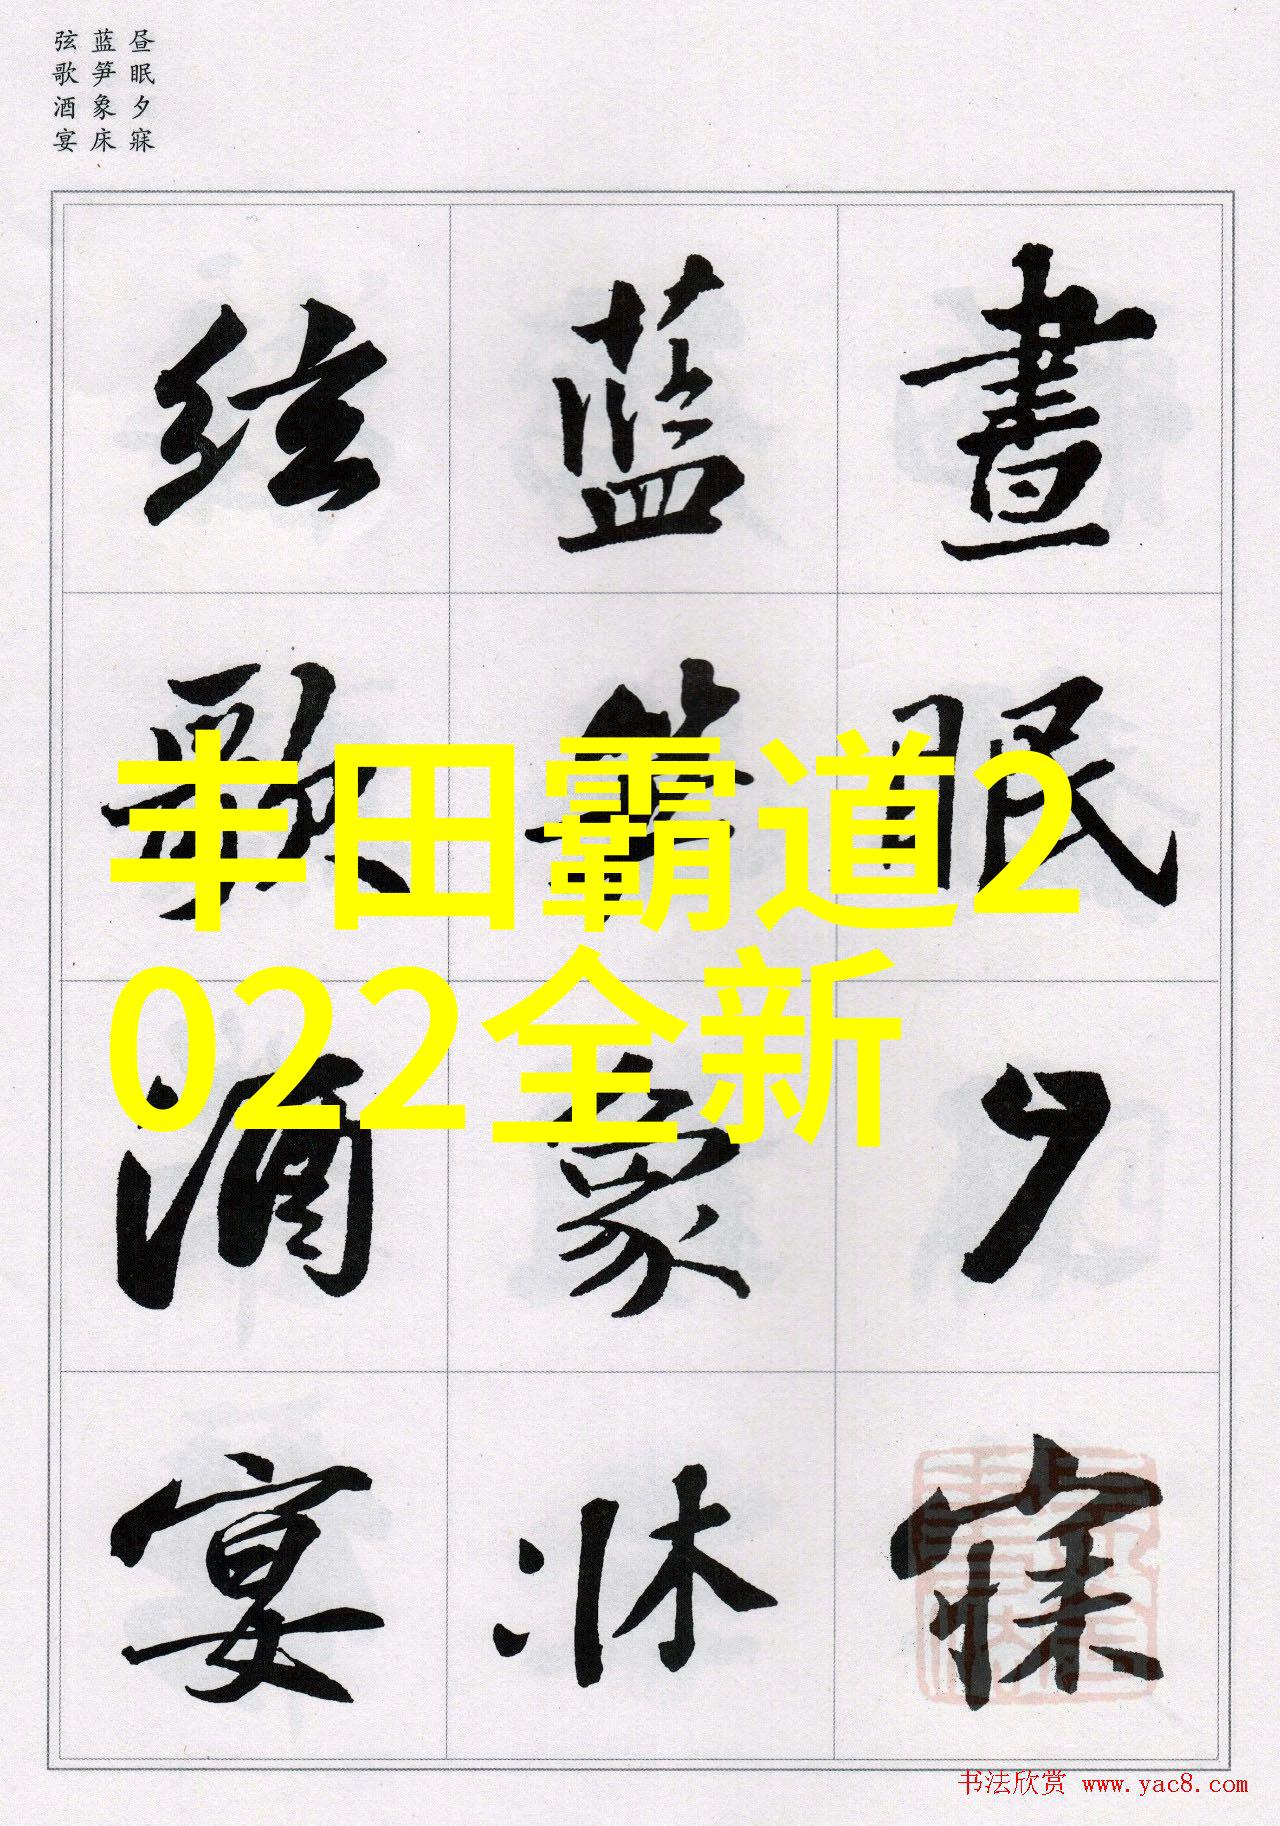 昼眠夕寐
蓝笋象床
弦歌酒宴
晝眠夕寐
藍笋象牀
弦歌酒宴
丰田霸道2
022全新
书法欣赏 www.yac8.com